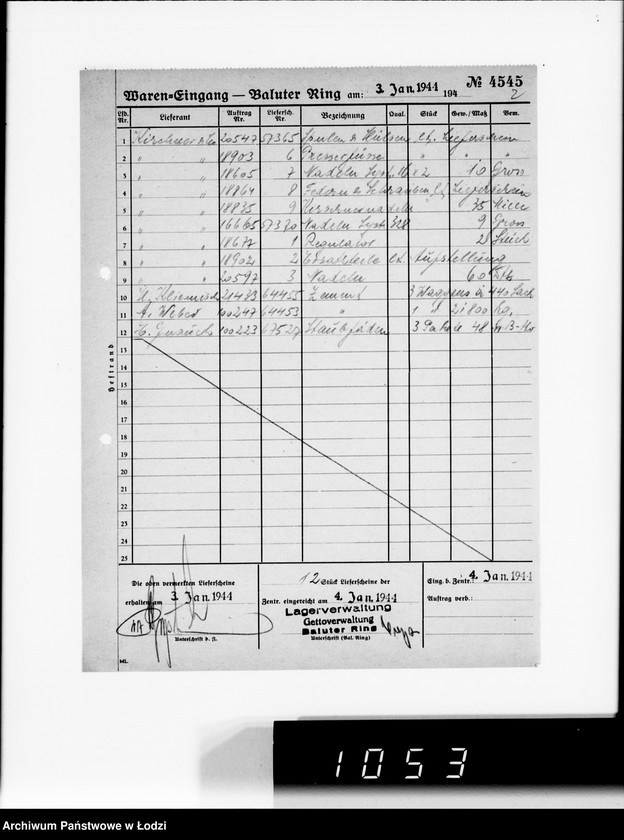 Waren=Eingang — Baluter Ring am: 3. Jan. 1944 194
№ 4545
2
Lfd. Nr. Lieferant Auftrag Nr. Liefersch. Nr. Bezeichnung Qual. Stück Gew./Maß Bem.
1 20547 57365 Spulen & Hülsen lt. Lieferschein
2 " " 18903 6 Presserfüsse " " "
3 " " 18605 7 Nadeln 10 Gros
4 " " 18764 8 Federn & Schrauben lt. Lieferschein
5 " " 18835 9 35 Mille
6 " " 16665 57370 Nadeln Syst. 328 9 Gros
7 " " 18677 1 Regulator 2 Stück
8 " " 18902 2 Ersatzteile lt. Aufstellung
9 " " 20597 3 Nadeln 60
10 21483 64455 Zement 3 Waggons à 440 Sack
11 A. Weber 100247 64453 " 1 21800 kg.
12 100223 67527 3 48
13
14
15
16
17
18
19
20
21
22
23
24
25
Heftrand
Die oben vermerkten Lieferscheine
erhalten am 3. Jan. 1944
Unterschrift d. fl.
12 Stück Lieferscheine der
Zentr. eingereicht am 4. Jan. 1944
Lagerverwaltung
Gettoverwaltung
Baluter Ring
Unterschrift (Bal. Ring)
Eing. b. Zentr.: 4. Jan. 1944
Auftrag verb.:
ML.
1053
Archiwum Państwowe w Łodzi